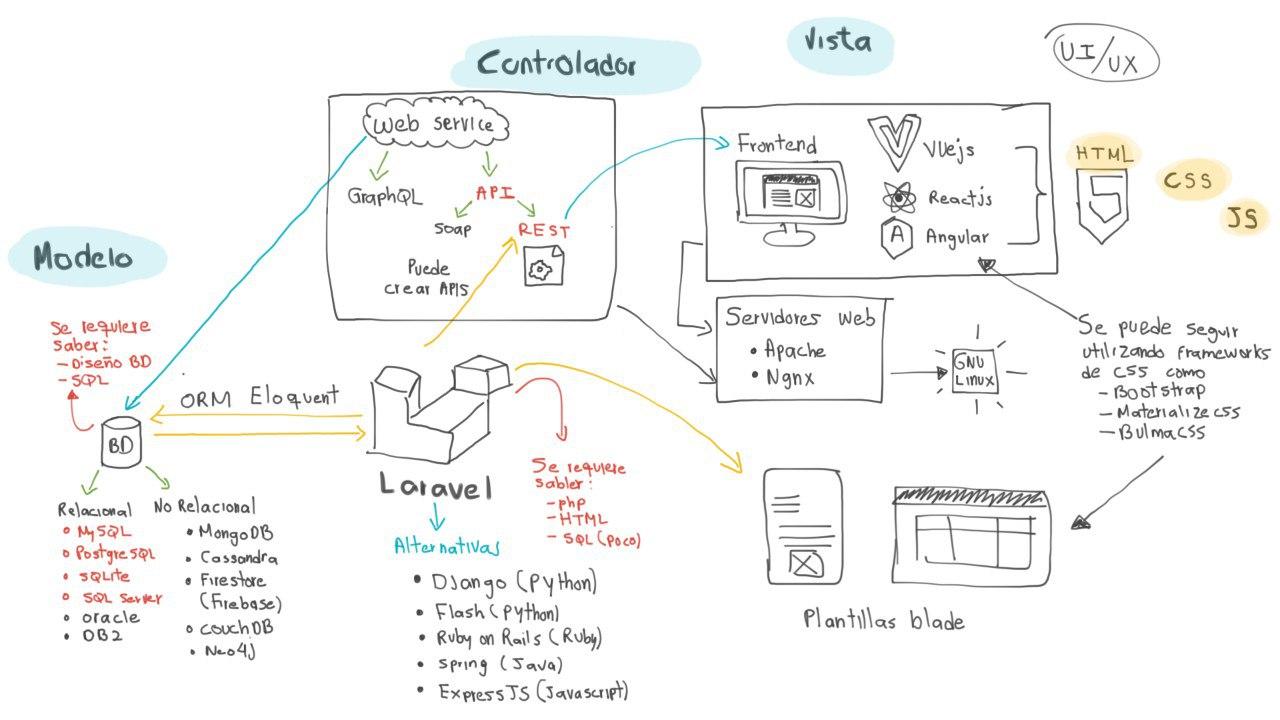 Controlador
Vista
UI/UX
Web service
GraphQL
API
Soap
REST
Puede
crear APIS
Frontend
Vuejs
Reactjs
A
Angular
HTML
5
CSS
JS
Modelo
Se requiere
saber:
- Diseño BD
- SQL
ORM Eloquent
BD
Relacional
• MySQL
• PostgreSQL
• SQLite
• SQL Server
• oracle
• DB2
No Relacional
• MongoDB
• Cassandra
• Firestore
(Firebase)
• couchDB
• Neo4j
Laravel
Alternativas
• Django (Python)
• Flash (Python)
• Ruby on Rails (Ruby)
• Spring (Java)
• ExpressJS (Javascript)
Se requiere
sabler:
- php
- HTML
- SQL (poco)
Servidores web
• Apache
• Ngnx
GNU
LINUX
Se puede seguir
utilizando frameworks
de CSS como
- Bootstrap
- Materialize css
- BulmaCSS
Plantillas blade